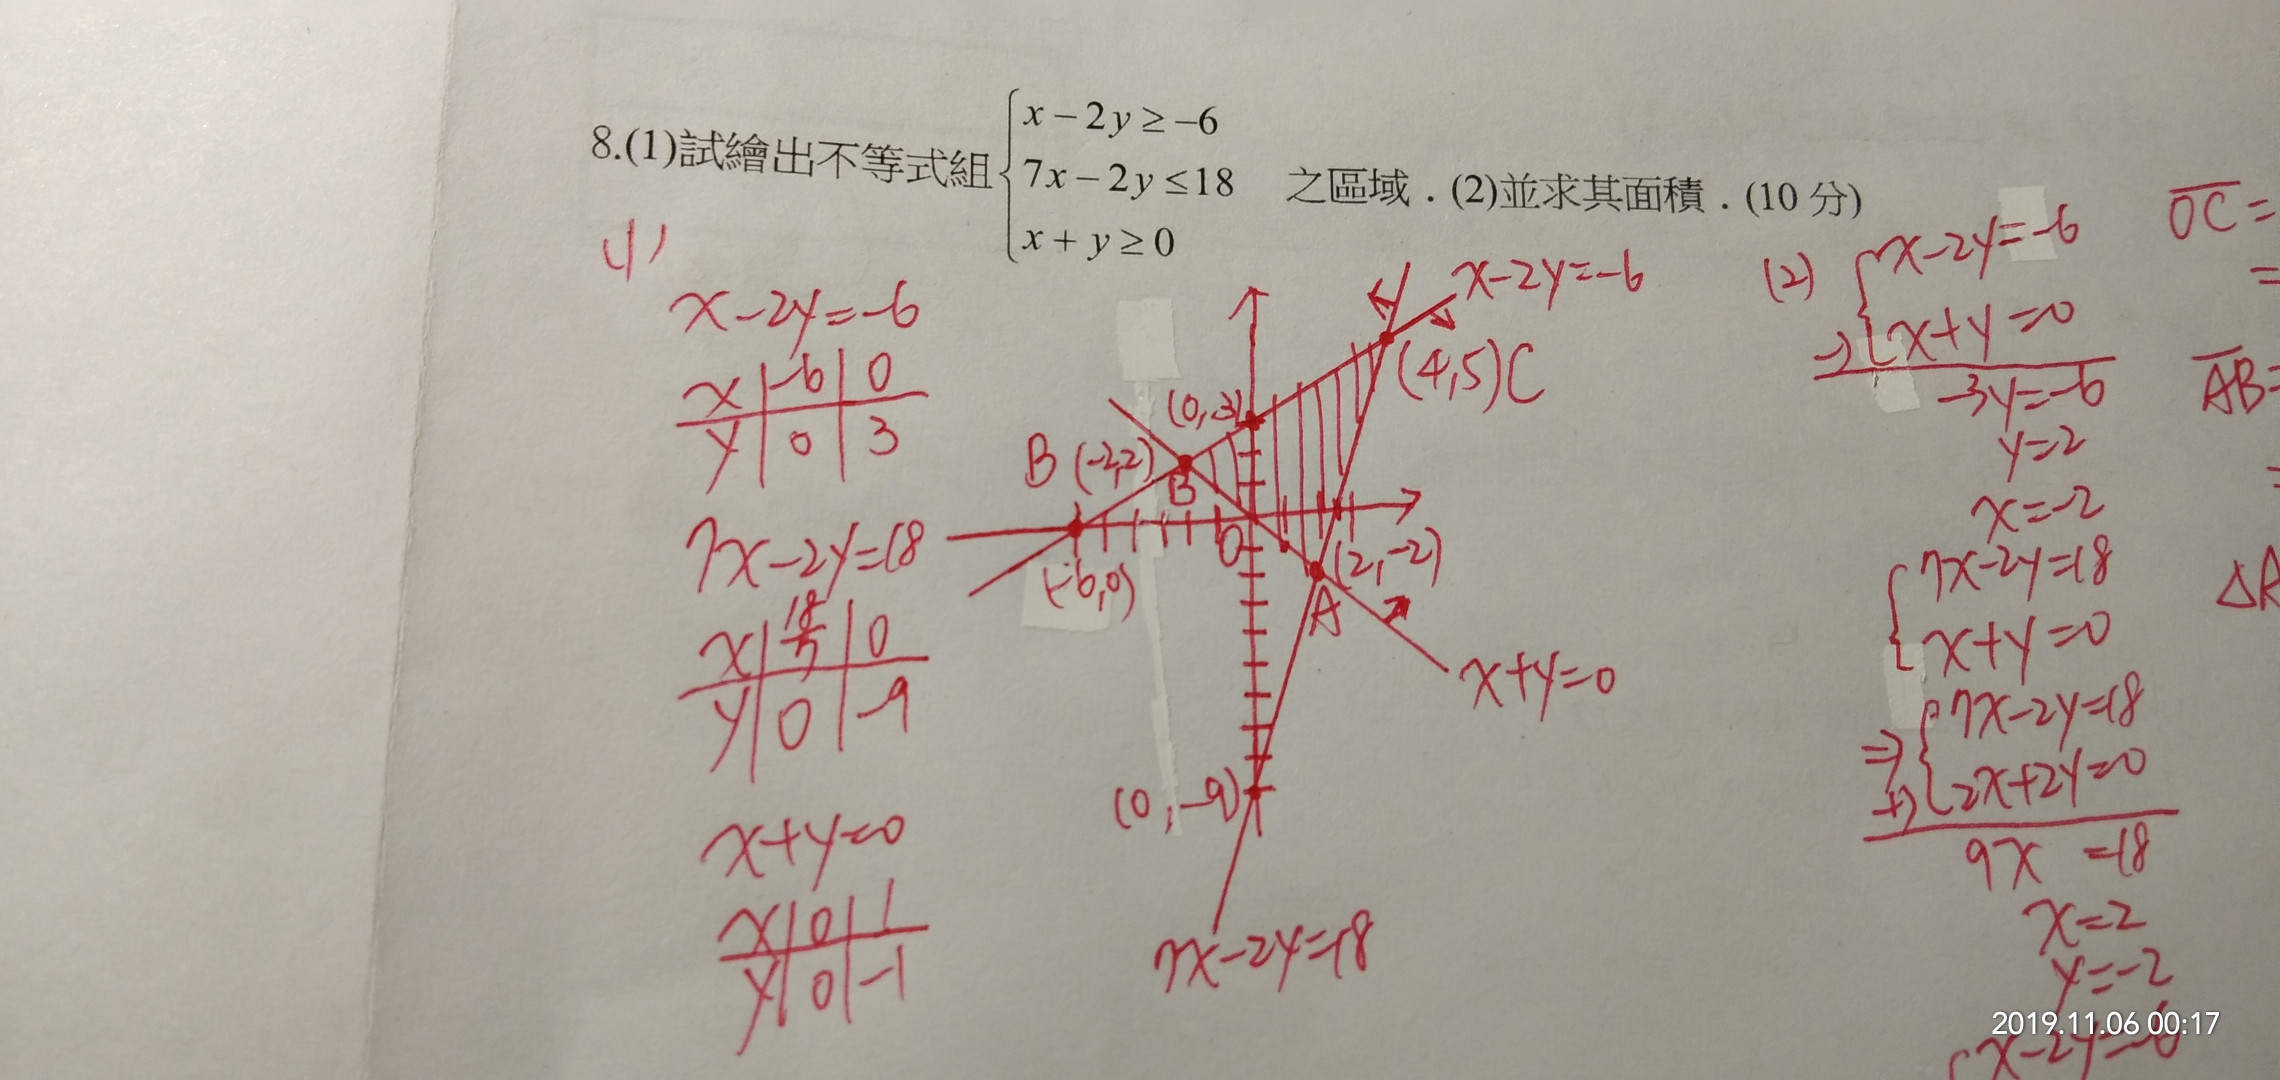 8.(1)試繪出不等式組 { x − 2y ≥ −6
7x − 2y ≤ 18
x + y ≥ 0
之區域．(2)並求其面積．(10 分)
(1)
x-2y=-6
x | -6 | 0
y | 0 | 3
7x-2y=18
x | 18/7 | 0
y | 0 | -9
x+y=0
x | 0 | 1
y | 0 | -1
x-2y=-6
(4,5)C
(0,3)
B (-2,2)
B
O
(-6,0)
(2,-2)
A
x+y=0
(0,-9)
7x-2y=18
(2) { x-2y=-6
-) x+y=0
-3y=-6
y=2
x=-2
{ 7x-2y=18
x+y=0
⇒ { 7x-2y=18
+) 2x+2y=0
9x =18
x=2
y=-2
{ x-2y=-6
OC =
=
AB=
=
△A
2019.11.06 00:17